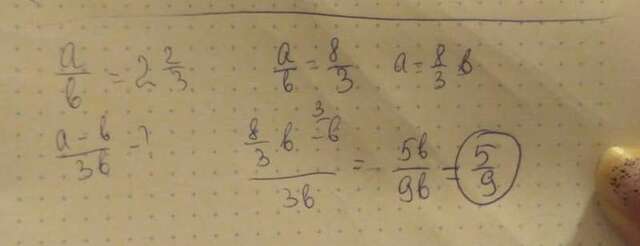 a/b = 2 2/3 a/b = 8/3 a = 8/3 b
(a - b)/3b - ? (8/3 b - b^3)/3b = 5b/9b = 5/9